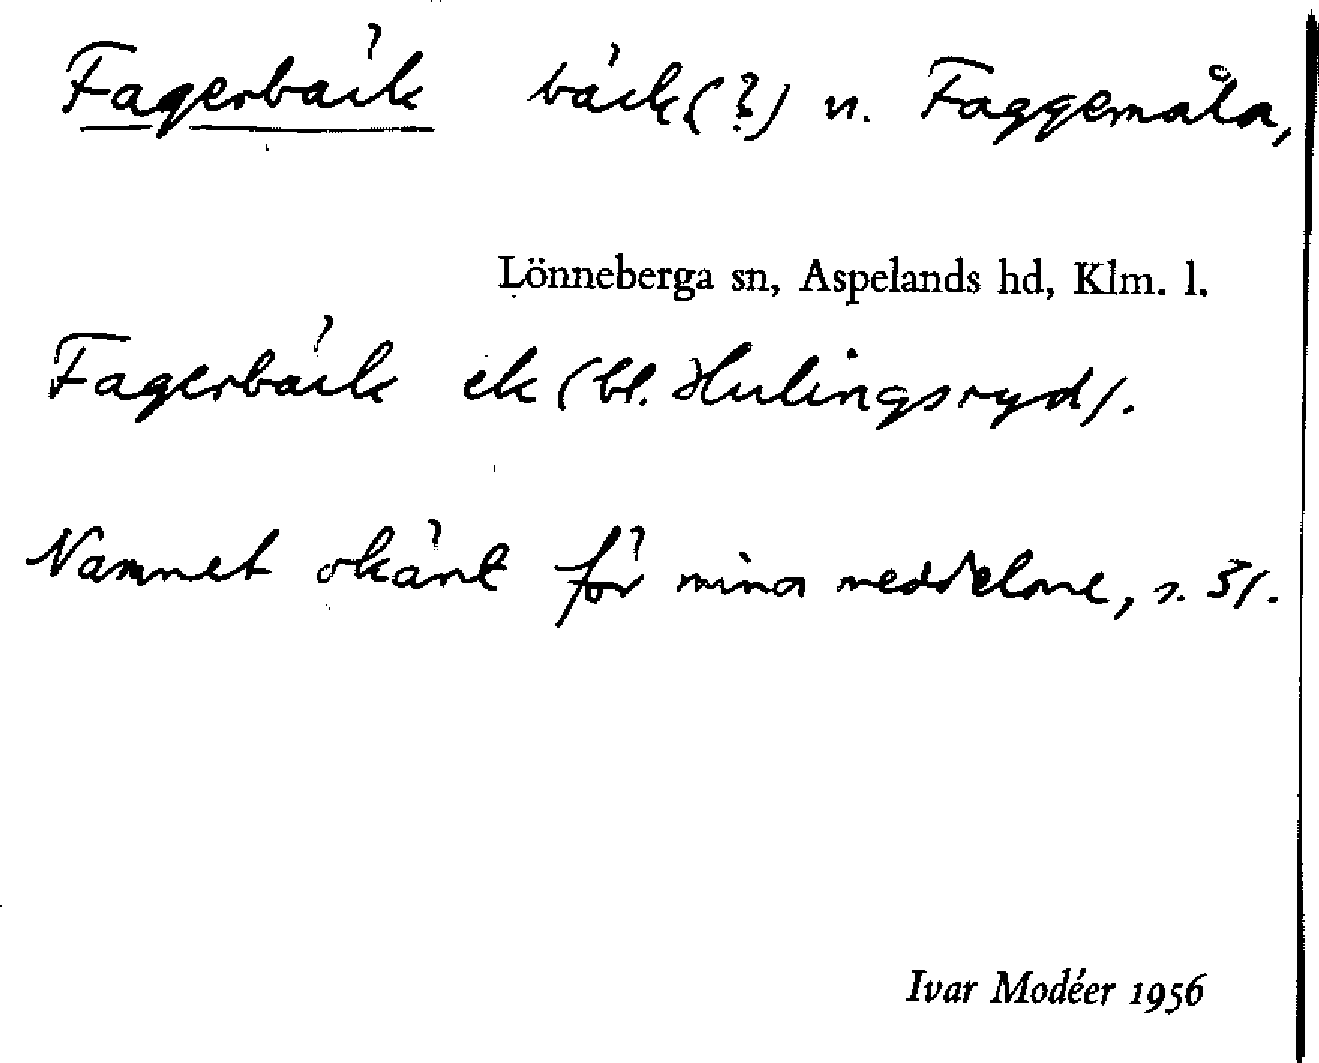 Fagerbäck bäck (?) n. Faggemåla,
Lönneberga sn, Aspelands hd, Klm. l.
Fagerbäck ek (bl. Hulingsryd).
Namnet okänt för mina meddelare, s. 31.
Ivar Modéer 1956